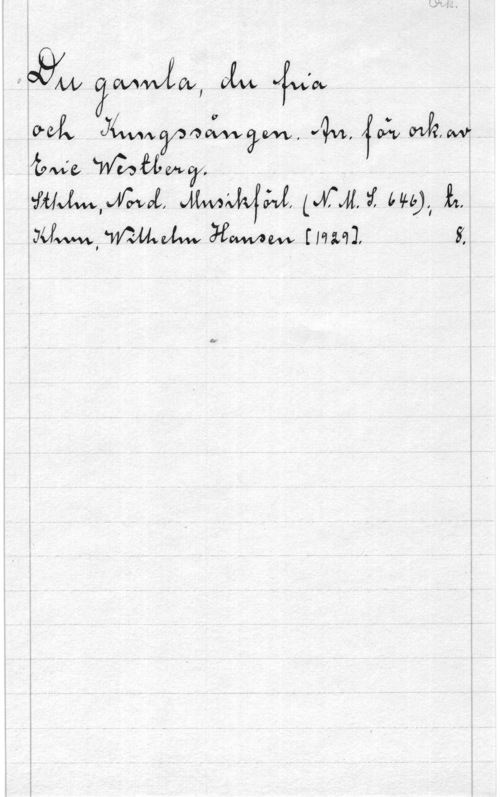 Ork.
Du gamla, du fria
och Kungssången. Arr. för ork. av
Eric Westberg.
Sthlm, Nord. Musikförl. (N. M. S. 646); tr.
Khvn, Wilhelm Hansen [1929]. 8.